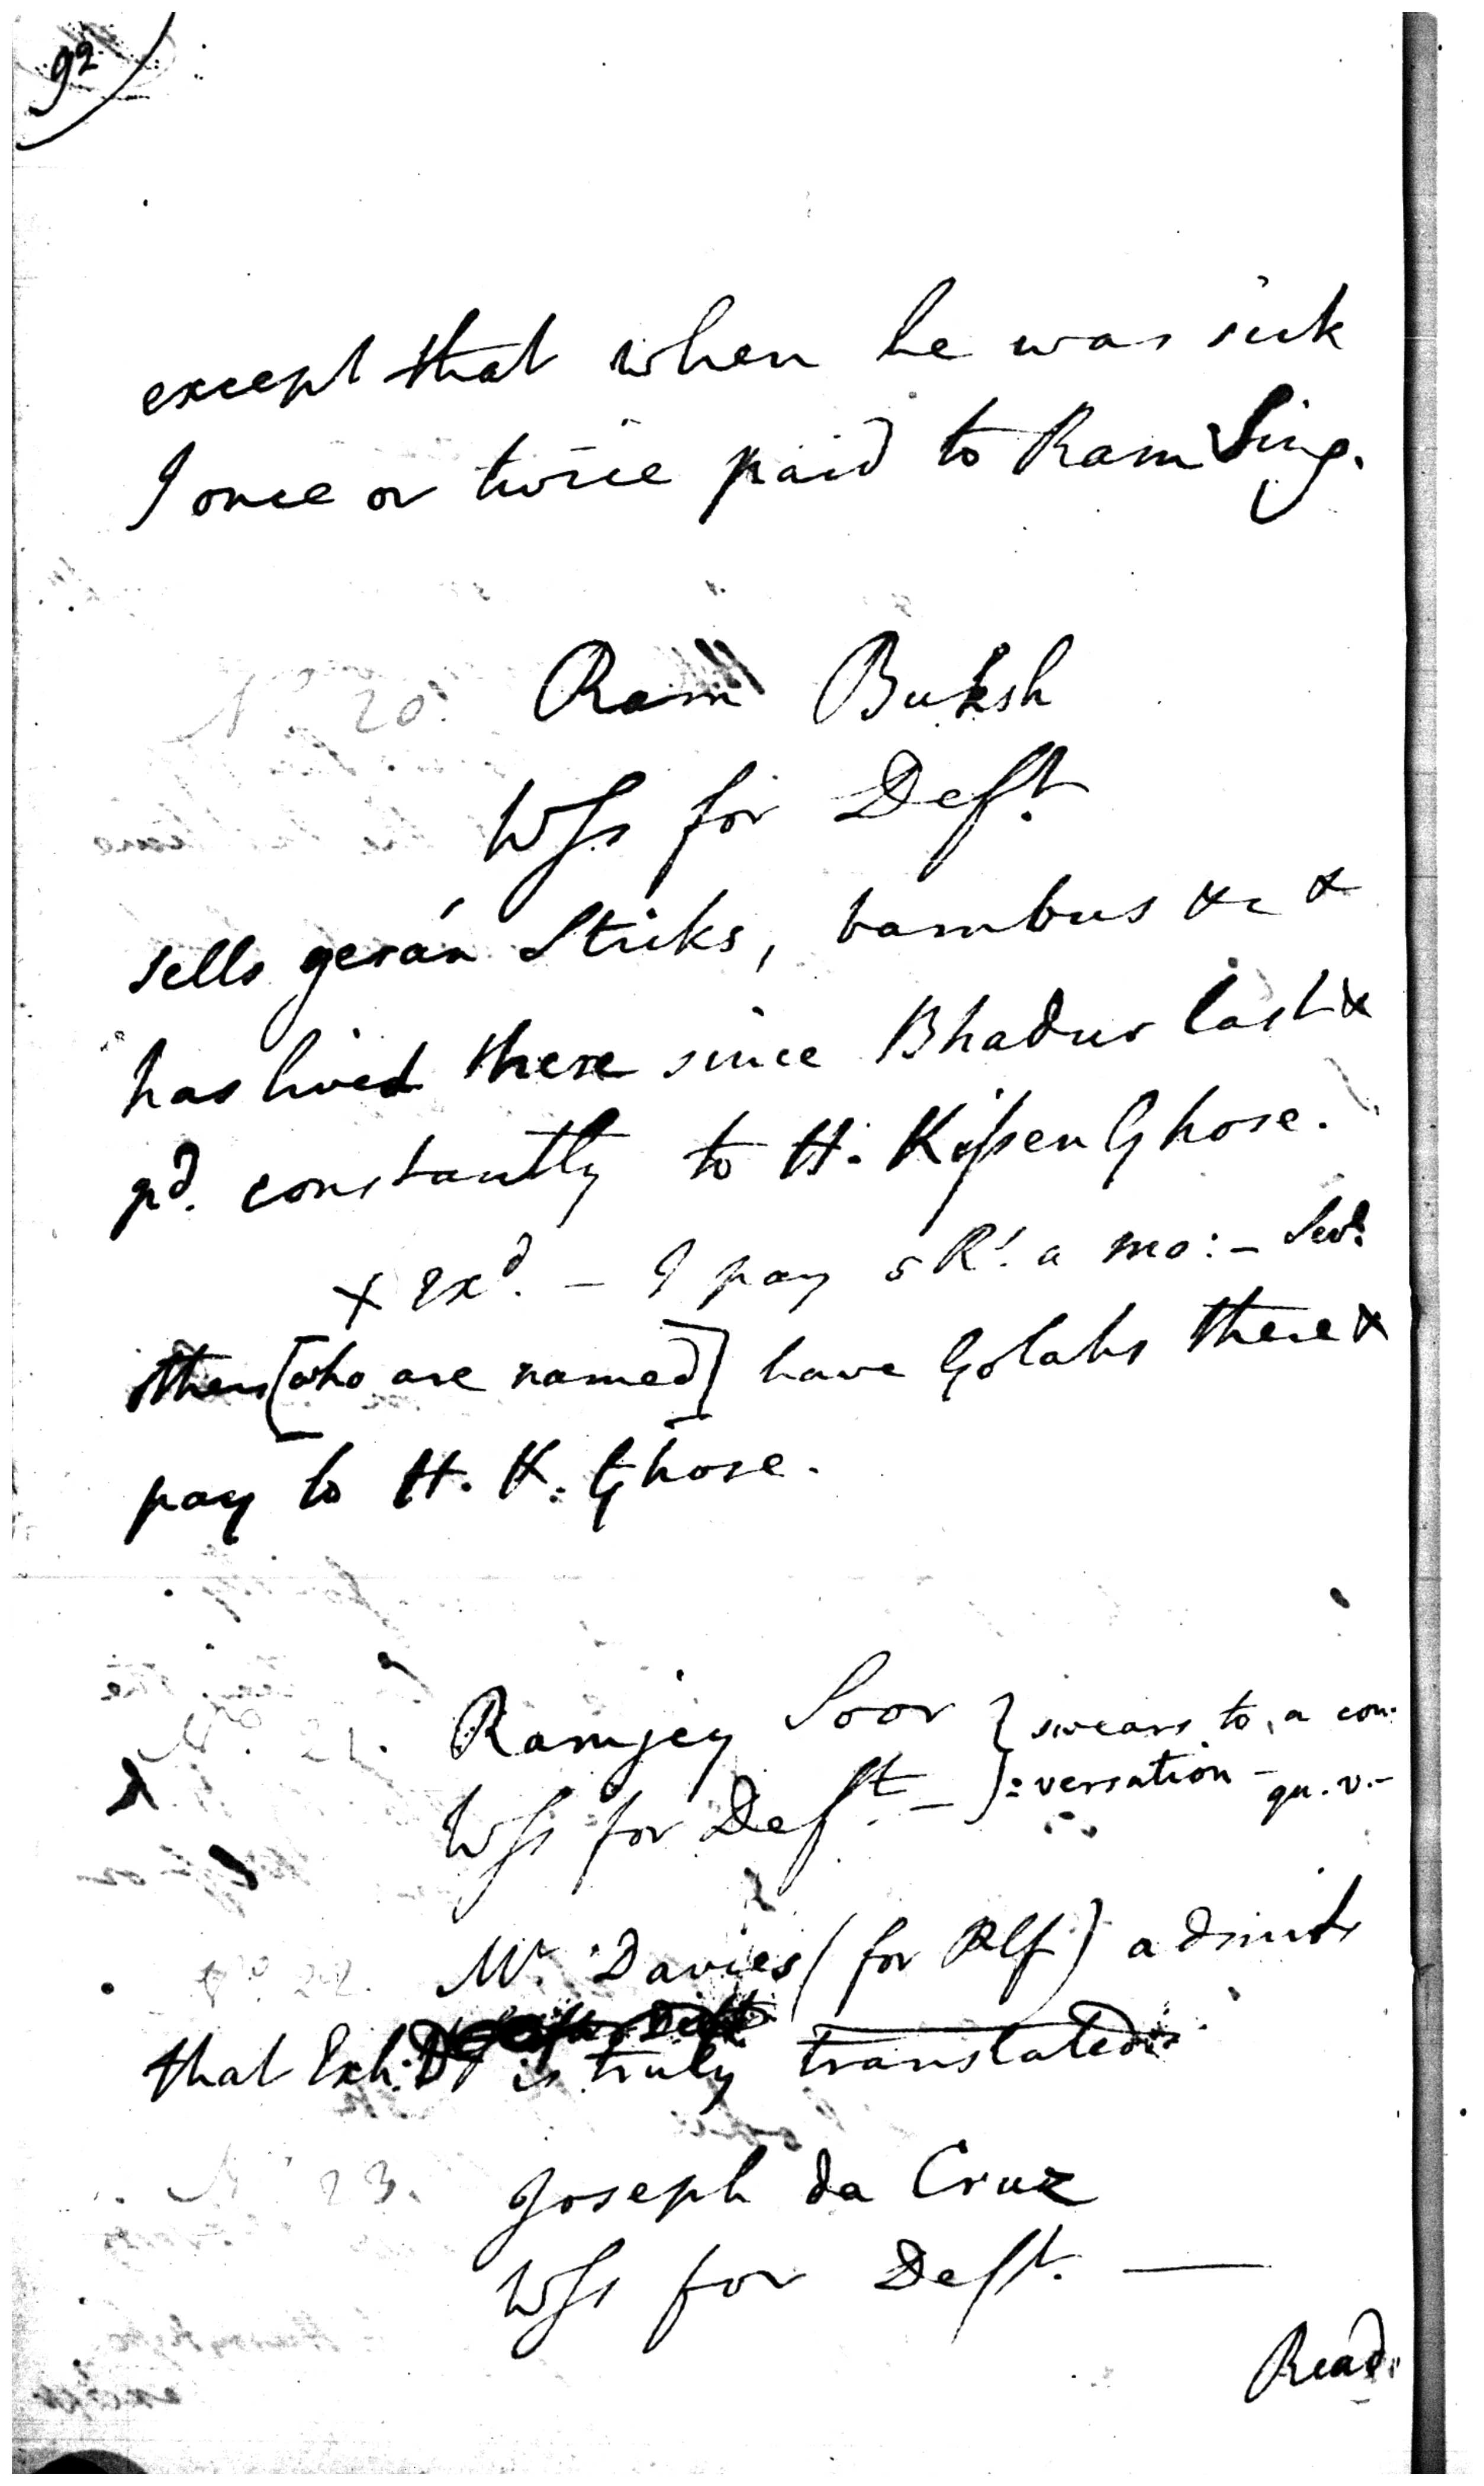 92
except that when he was sick
I once or twice paid to Ram Sing.
No. 20. Ram Buksh
Wss for Deft.
sells gerán sticks, bambus &c &
has lived there since Bhadur last &
pd. constantly to H. Kissen Ghose.
X exd. – I pay 5 Rs. a mo: –
others [who are named] have Golahs there &
pay to H. K. Ghose.
No. 21. Ramjey Soor } swears to a con:
Wss for Deft. – } :versation – qu. v. –
No. 22. Mr. Davies (for Plf) admits
that Exh. D is truly translated
No. 23. Joseph da Cruz
Wss for Deft. —
Read